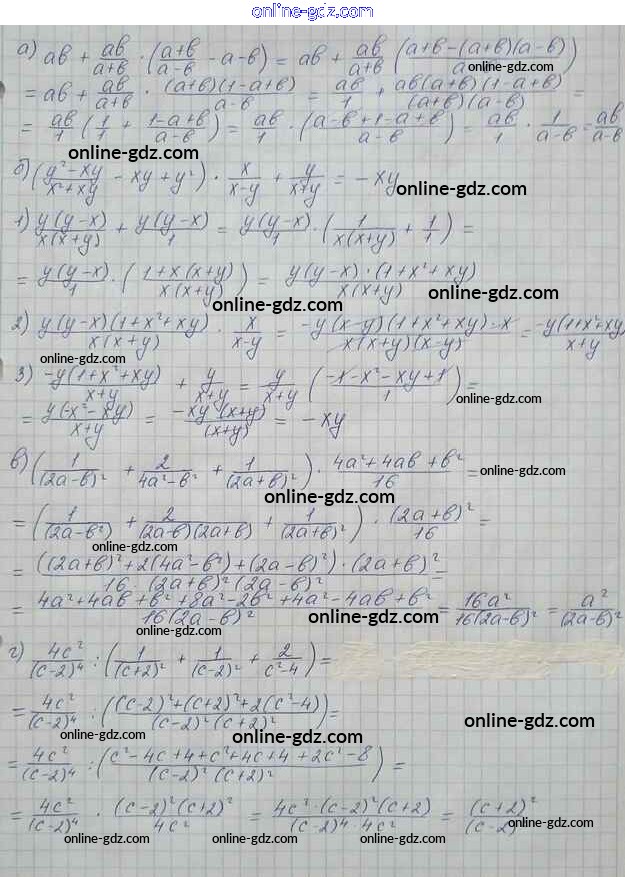 online-gdz.com
а) ab + ab/(a+b) · ((a+b)/(a-b) - a - b) = ab + ab/(a+b) ((a+b-(a+b)(a-b))/a
online-gdz.com
= ab + ab/(a+b) · (a+b)(1-a+b)/(a-b) = ab/1 + ab(a+b)(1-a+b)/((a+b)(a-b)) =
= ab/1 (1/1 + (1-a+b)/(a-b)) = ab/1 · ((a-b+1-a+b)/(a-b)) = ab/1 · 1/(a-b) = ab/(a-b)
online-gdz.com
б) ((y²-xy)/(x²+xy) - xy + y²) · x/(x-y) + y/(x+y) = -xy
online-gdz.com
1) y(y-x)/(x(x+y)) + y(y-x)/1 = y(y-x)/1 · (1/(x(x+y)) + 1/1) =
= y(y-x)/1 · ((1+x(x+y))/(x(x+y))) = y(y-x)·(1+x²+xy)/(x(x+y))
online-gdz.com online-gdz.com
2) y(y-x)(1+x²+xy)/(x(x+y)) · x/(x-y) = -y(x-y)(1+x²+xy)·x/(x(x+y)(x-y)) = -y(1+x²+xy)/(x+y)
online-gdz.com
3) -y(1+x²+xy)/(x+y) + y/(x+y) = y/(x+y) ((-1-x²-xy+1)/1) =
online-gdz.com
= y(-x²-xy)/(x+y) = -xy(x+y)/(x+y) = -xy
в) (1/(2a-b)² + 2/(4a²-b²) + 1/(2a+b)²) · (4a²+4ab+b²)/16 =
online-gdz.com
online-gdz.com
= (1/(2a-b²) + 2/((2a-b)(2a+b)) + 1/(2a+b²)) · (2a+b)²/16 =
online-gdz.com
= ((2a+b)²+2(4a²-b²)+(2a-b)²)·(2a+b)²/(16·(2a+b)²(2a-b)²) =
= (4a²+4ab+b²+8a²-2b²+4a²-4ab+b²)/(16(2a-b)²) = 16a²/(16(2a-b)²) = a²/(2a-b)²
online-gdz.com online-gdz.com
г) 4c²/(c-2)⁴ : (1/(c+2)² + 1/(c-2)² + 2/(c²-4)) =
= 4c²/(c-2)⁴ : (((c-2)²+(c+2)²+2(c²-4))/((c-2)²(c+2)²)) =
online-gdz.com online-gdz.com online-gdz.com
= 4c²/(c-2)⁴ : ((c²-4c+4+c²+4c+4+2c²-8)/((c-2)²(c+2)²)) =
= 4c²/(c-2)⁴ · (c-2)²(c+2)²/4c² = 4c²·(c-2)²(c+2)/((c-2)⁴·4c²) = (c+2)²/(c-2)
online-gdz.com online-gdz.com online-gdz.com